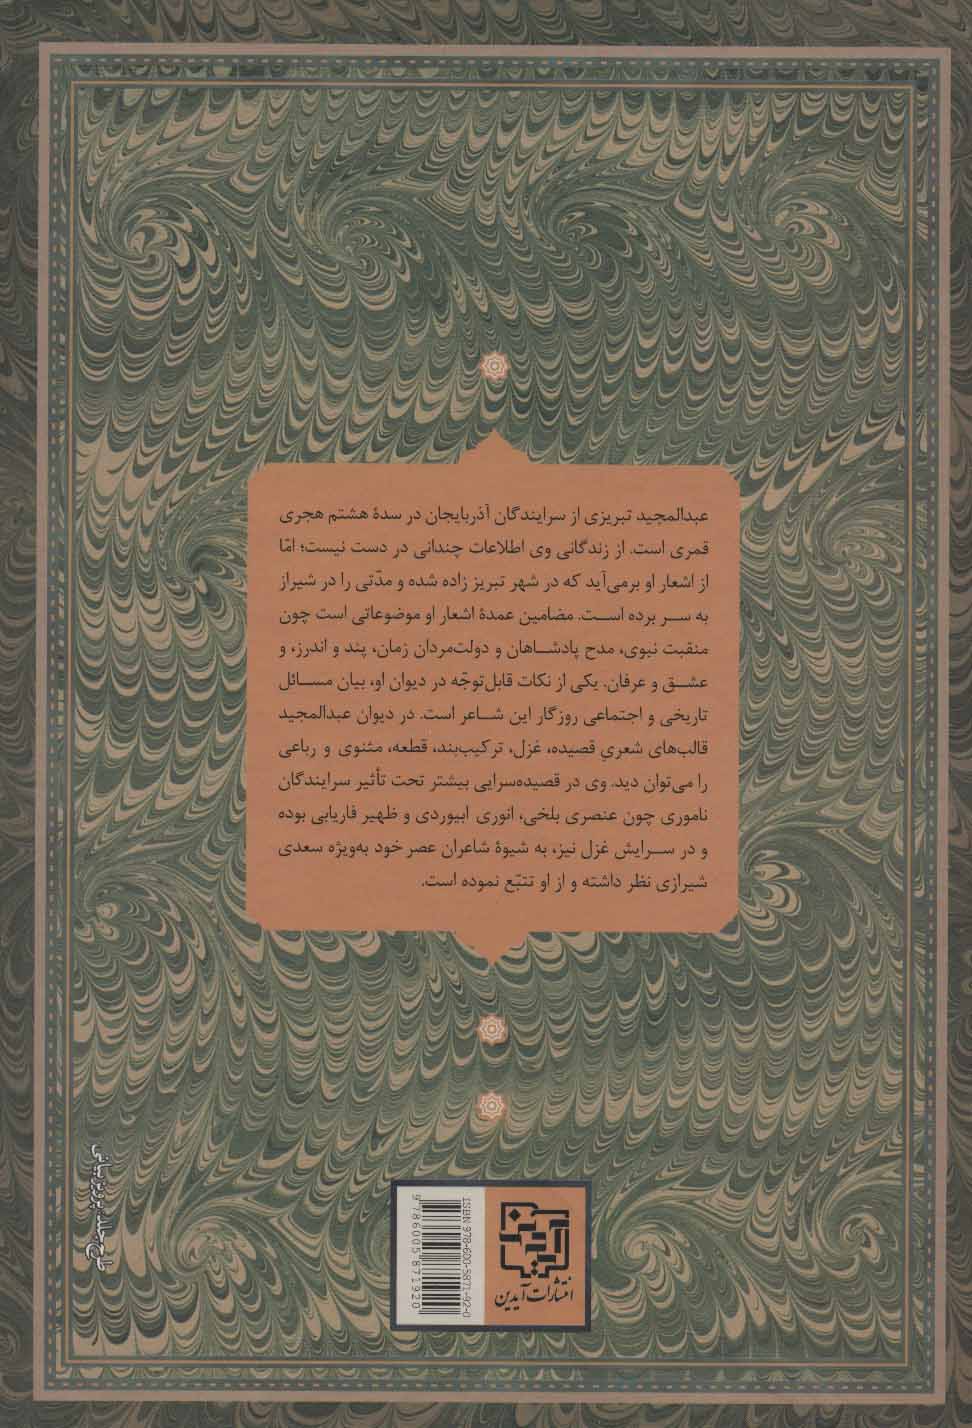 عبدالمجید تبریزی از سرایندگان آذربایجان در سدهٔ هشتم هجری
قمری است. از زندگانی وی اطلاعات چندانی در دست نیست؛ امّا
از اشعار او برمی‌آید که در شهر تبریز زاده شده و مدّتی را در شیراز
به سر برده است. مضامین عمدهٔ اشعار او موضوعاتی است چون
منقبت نبوی، مدح پادشاهان و دولت‌مردان زمان، پند و اندرز، و
عشق و عرفان. یکی از نکات قابل‌توجّه در دیوان او، بیان مسائل
تاریخی و اجتماعی روزگار این شاعر است. در دیوان عبدالمجید
قالب‌های شعریِ قصیده، غزل، ترکیب‌بند، قطعه، مثنوی و رباعی
را می‌توان دید. وی در قصیده‌سرایی بیشتر تحت تأثیر سرایندگان
ناموری چون عنصری بلخی، انوری ابیوردی و ظهیر فاریابی بوده
و در سرایش غزل نیز، به شیوهٔ شاعران عصر خود به‌ویژه سعدی
شیرازی نظر داشته و از او تتبّع نموده است.
طرح جلد:
انتشارات آیدین
ISBN 978-600-5871-92-0
9786005871920